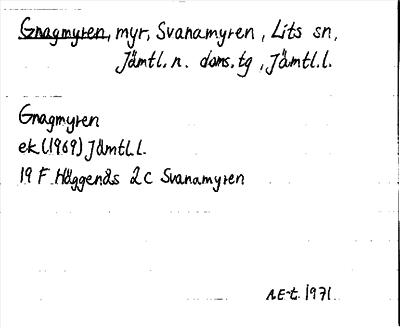 Gnagmyren, myr, Svanamyren, Lits sn,
Jämtl. n. doms.tg, Jämtl.l.
Gnagmyren
ek.(1969) Jämtl.l.
19 F Häggenås 2c Svanamyren
A.E-t. 1971